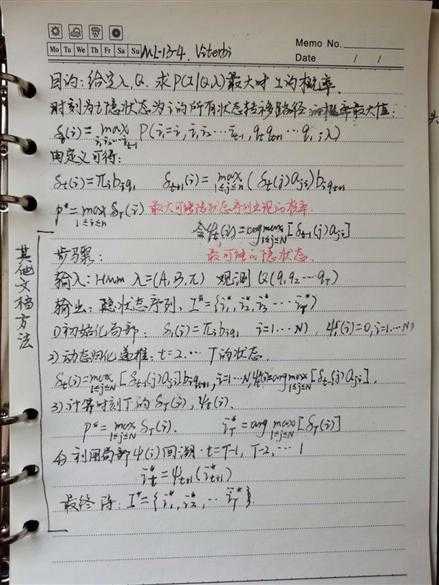 Memo No.
Mo Tu We Th Fr Sa Su ML-13-4. Viterbi
Date / /
目的：给定λ,Q. 求P(I|Q,λ)最大时I的概率.
时刻为t隐状态为i的所有状态转移路径 概率最大值:
δt(i)=max i1,i2…it-1 P(it=i, i1,i2…it-1, qt qt-1…q1, λ)
由定义可得:
δ1(i)=πi biq1 δt+1(i)=max 1≤j≤n (δt(j)aji)biqt+1
P*=max 1≤i≤n δT(i) 最大可能隐状态序列出现的概率.
令ψt(i)=arg max 1≤j≤N [δt-1(j)aji]
步骤: 最可能的隐状态.
输入: Hmm λ=(A,B,π) 观测Q(q1,q2…qT)
输出: 隐状态序列, I*={i1*,i2*,i3*…iT*}
1)初始化局部: δ1(i)=πi biq1, i=1…N), ψ1(i)=0,i=1…N)
2)动态归化递推: t=2…T的状态.
δt(i)=max 1≤j≤N [δt-1(j)aji]biqt, i=1…N ψt(i)=arg max 1≤j≤N [δt-1(j)aji].
3)计算时刻T的δT(i), ψt(i).
P*=max 1≤j≤N δT(i). iT*=arg max 1≤j≤N [δT(i)]
4)利用局部ψ(i)回溯. t=T-1, T-2,… 1
it*=ψt+1(it+1*)
最终得: I*={i1*,i2*,…iT*}
其他文档方法